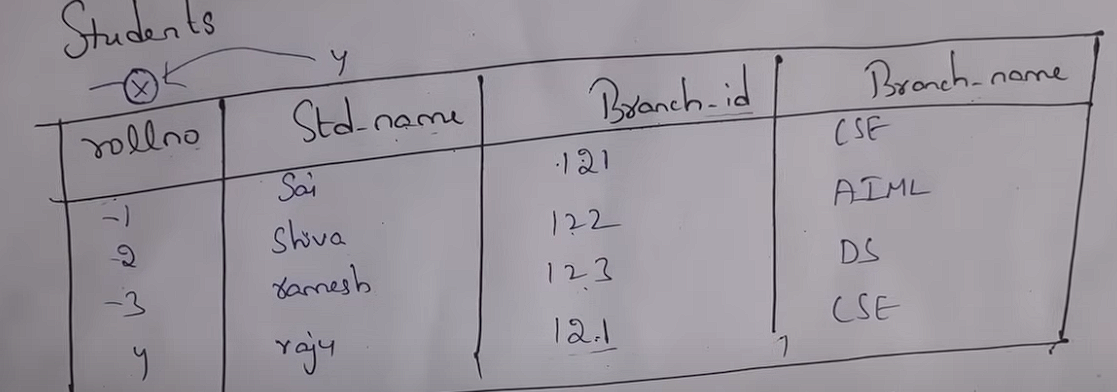 Students
X y
rollno Std-name Branch-id Branch-name
-1 Sai 121 CSE
-2 Shiva 122 AIML
-3 ramesh 123 DS
4 raju 121 CSE